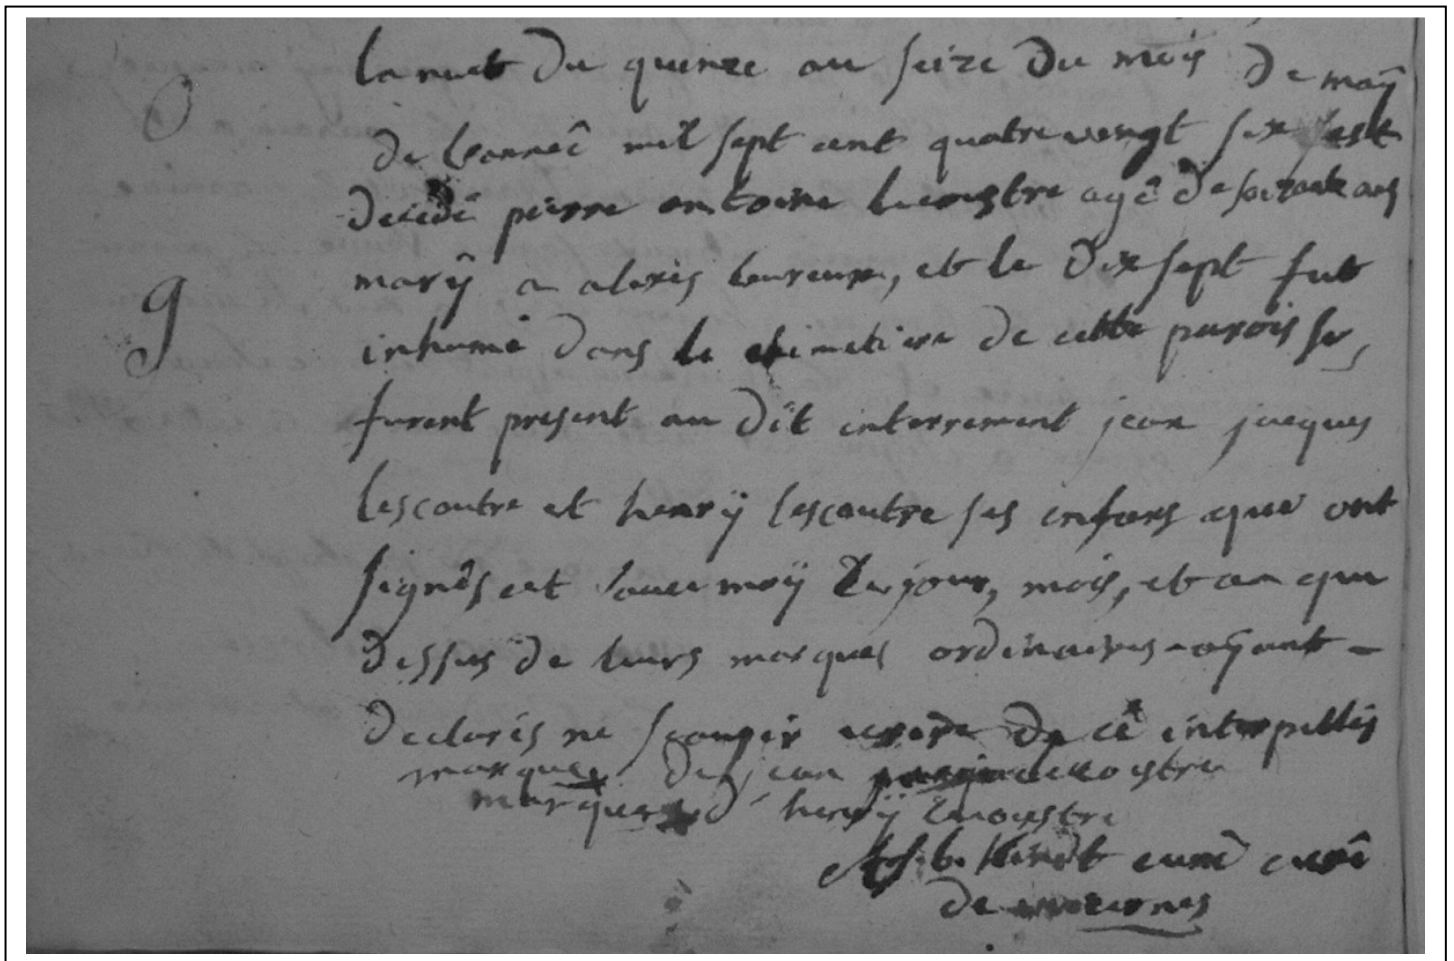 la nuit du quinze au seize du mois de maÿ
de l'année mil sept cent quatre vengt six est
decedé pierre antoine agé de soixante ans
marÿ a alexis, et le dix sept fut
inhumé dans le cheimetiere de cette paroisse,
furent present au dit interrement jean jacques
lescoutre et henrÿ lescoutre ses enfans que ont
signés avec moÿ le jour, mois, et an que
dessus de leurs marques ordinaires aÿant -
declarés ne scavoir de ce interpellés
marque de jean
marque d' henrÿ
curé
de
9